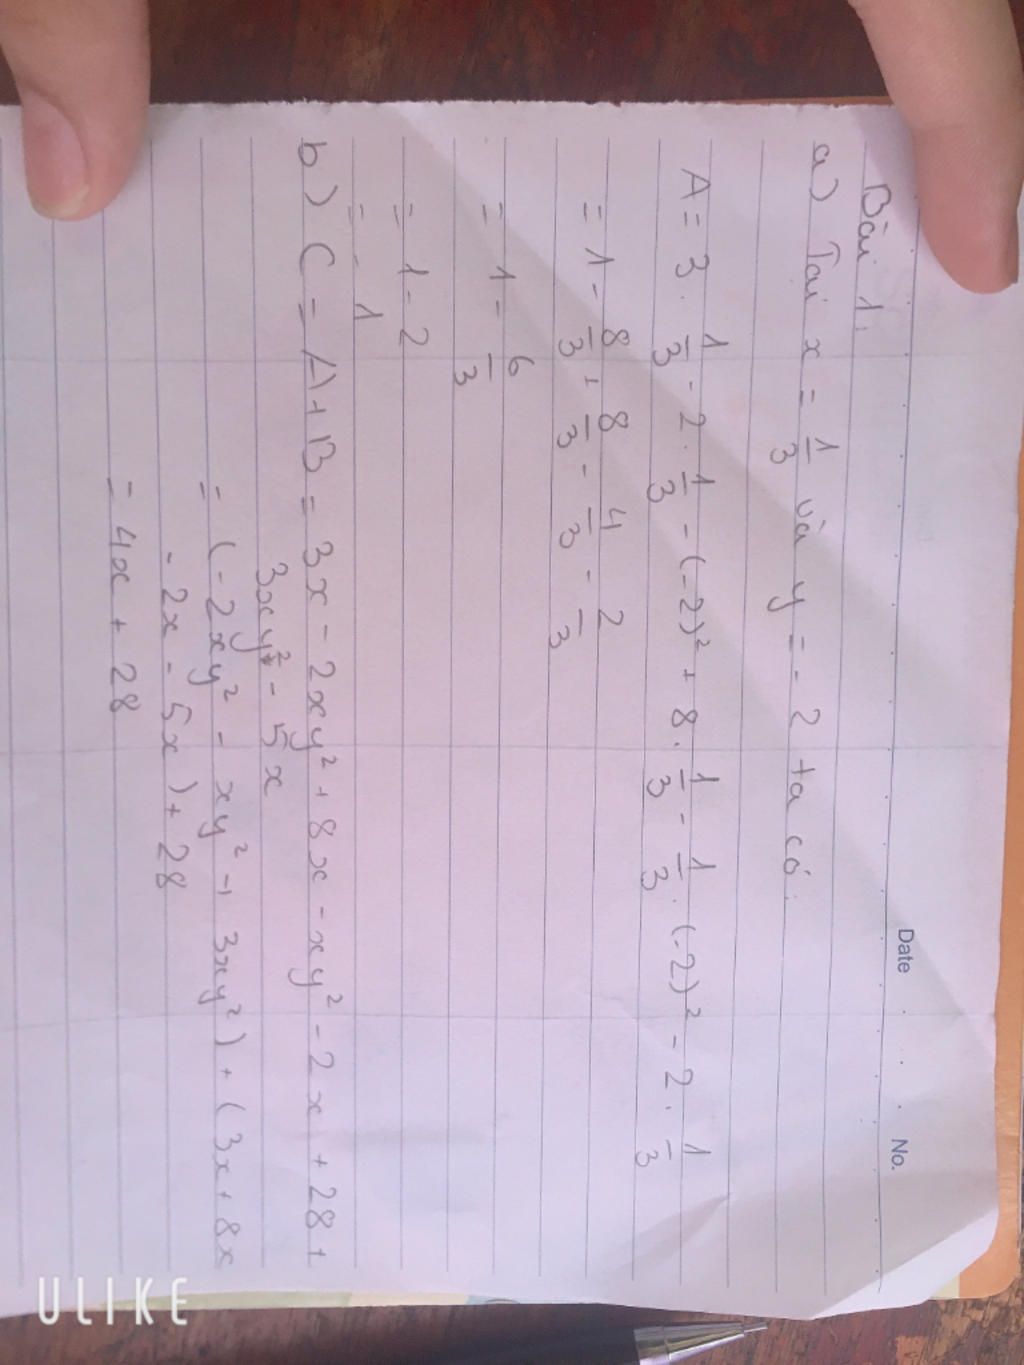 Date No.
Bài 1:
a) Tại x = 1/3 và y = - 2 ta có.
A = 3 . 1/3 - 2 . 1/3 - (-2)² + 8 . 1/3 - 1/3 . (-2)² - 2 . 1/3
= 1 - 8/3 + 8/3 - 4/3 - 2/3
= 1 - 6/3
= 1 - 2
= - 1
b) C = A + B = 3x - 2xy² + 8x - xy² - 2x + 28 +
3xy² - 5x
= (-2xy² - xy² + 3xy²) + (3x + 8x
- 2x - 5x) + 28
= 4x + 28
ULIKE